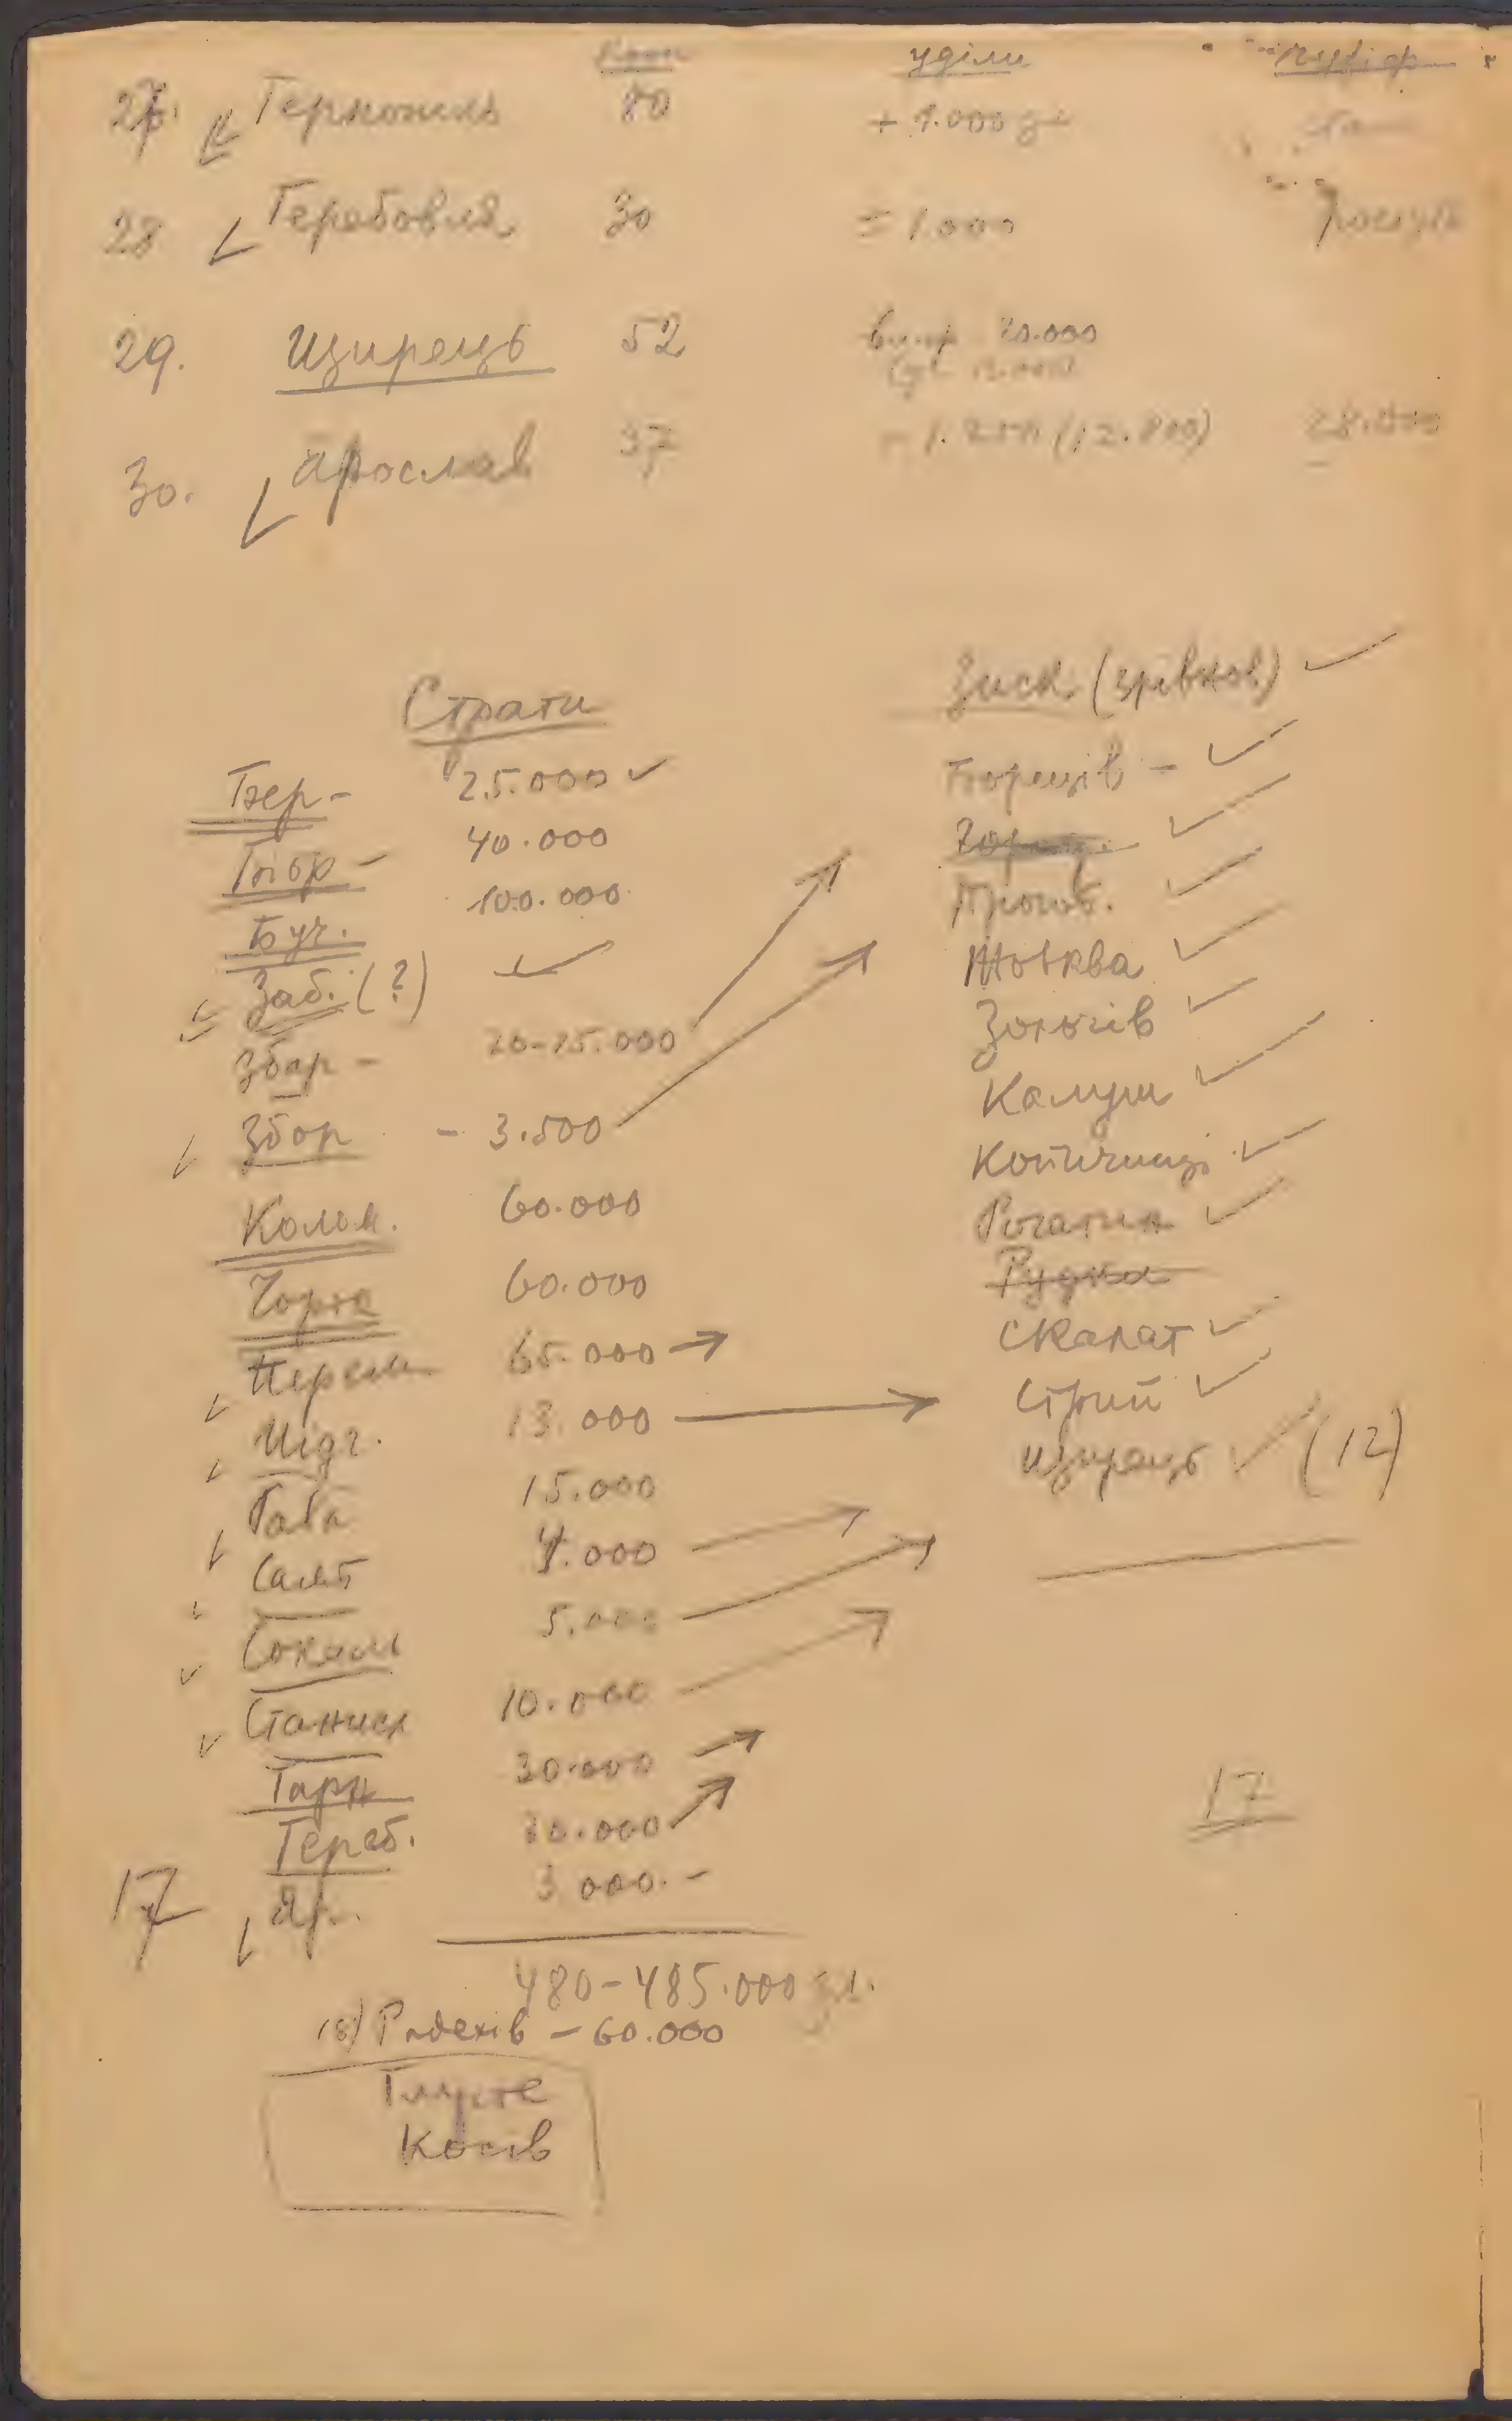 Кооп уділи
27. Тернопіль 80 + 1.000
28 Теребовля 30 ± 1.000
29. Щирець 52 20.000
30. Ярослав 37 - 1.200 (12.800) 28.000
Страти
Бер- 25.000
Бібр- 40.000
Буч. 100.000
Заб. (?)
Збар- 20-25.000
Збор - 3.500
Колом. 60.000
Чортк 60.000
Перем 65.000
Підг. 13.000
Рава 15.000
Самб 4.000
Сокаль 5.000
Станисл 10.000
Тарн 30.000
Тереб. 30.000
17 Яр. 3 000.-
480-485.000 зл.
18) Радехів - 60.000
Тлусте
Косів
Зиск (зрівнов)
Борщів -
Дрогоб.
Жовква
Золочів
Калуш
Копичинці
Рогатин
Рудки
Скалат
Стрий
Щирець (12)
17